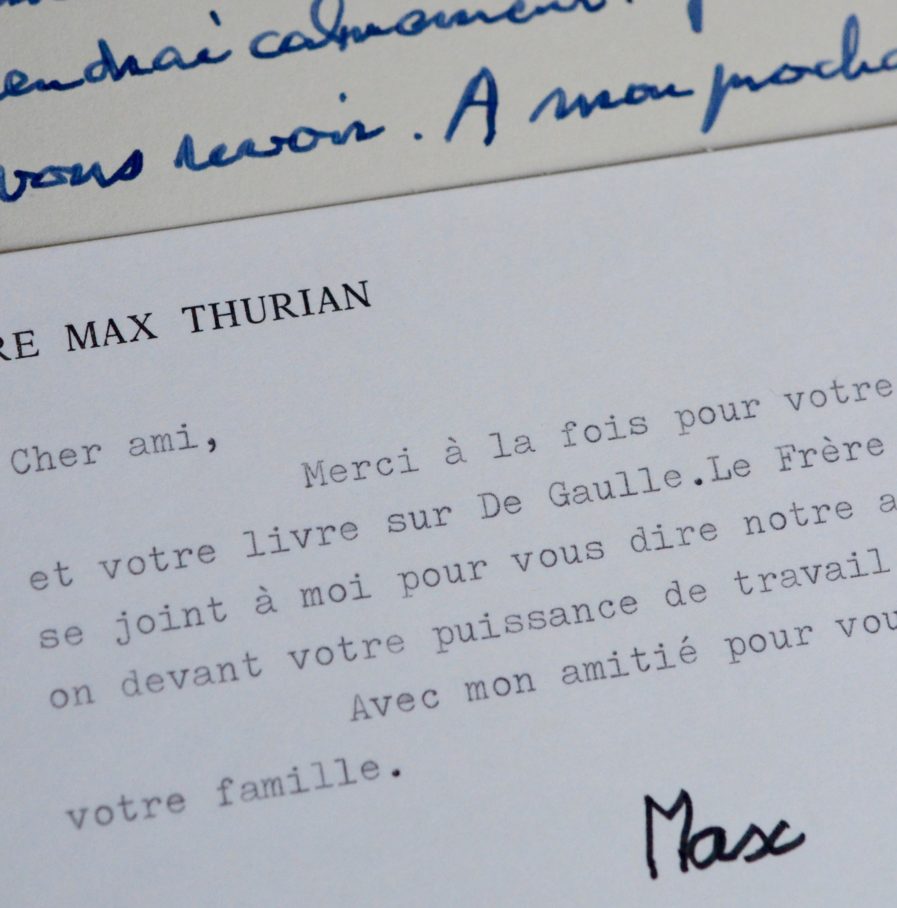 endrai calmement.
vous revoir. A mon procha
RE MAX THURIAN
Cher ami,
Merci à la fois pour votre
et votre livre sur De Gaulle.Le Frère
se joint à moi pour vous dire notre a
on devant votre puissance de travail
Avec mon amitié pour vou
votre famille.
Max